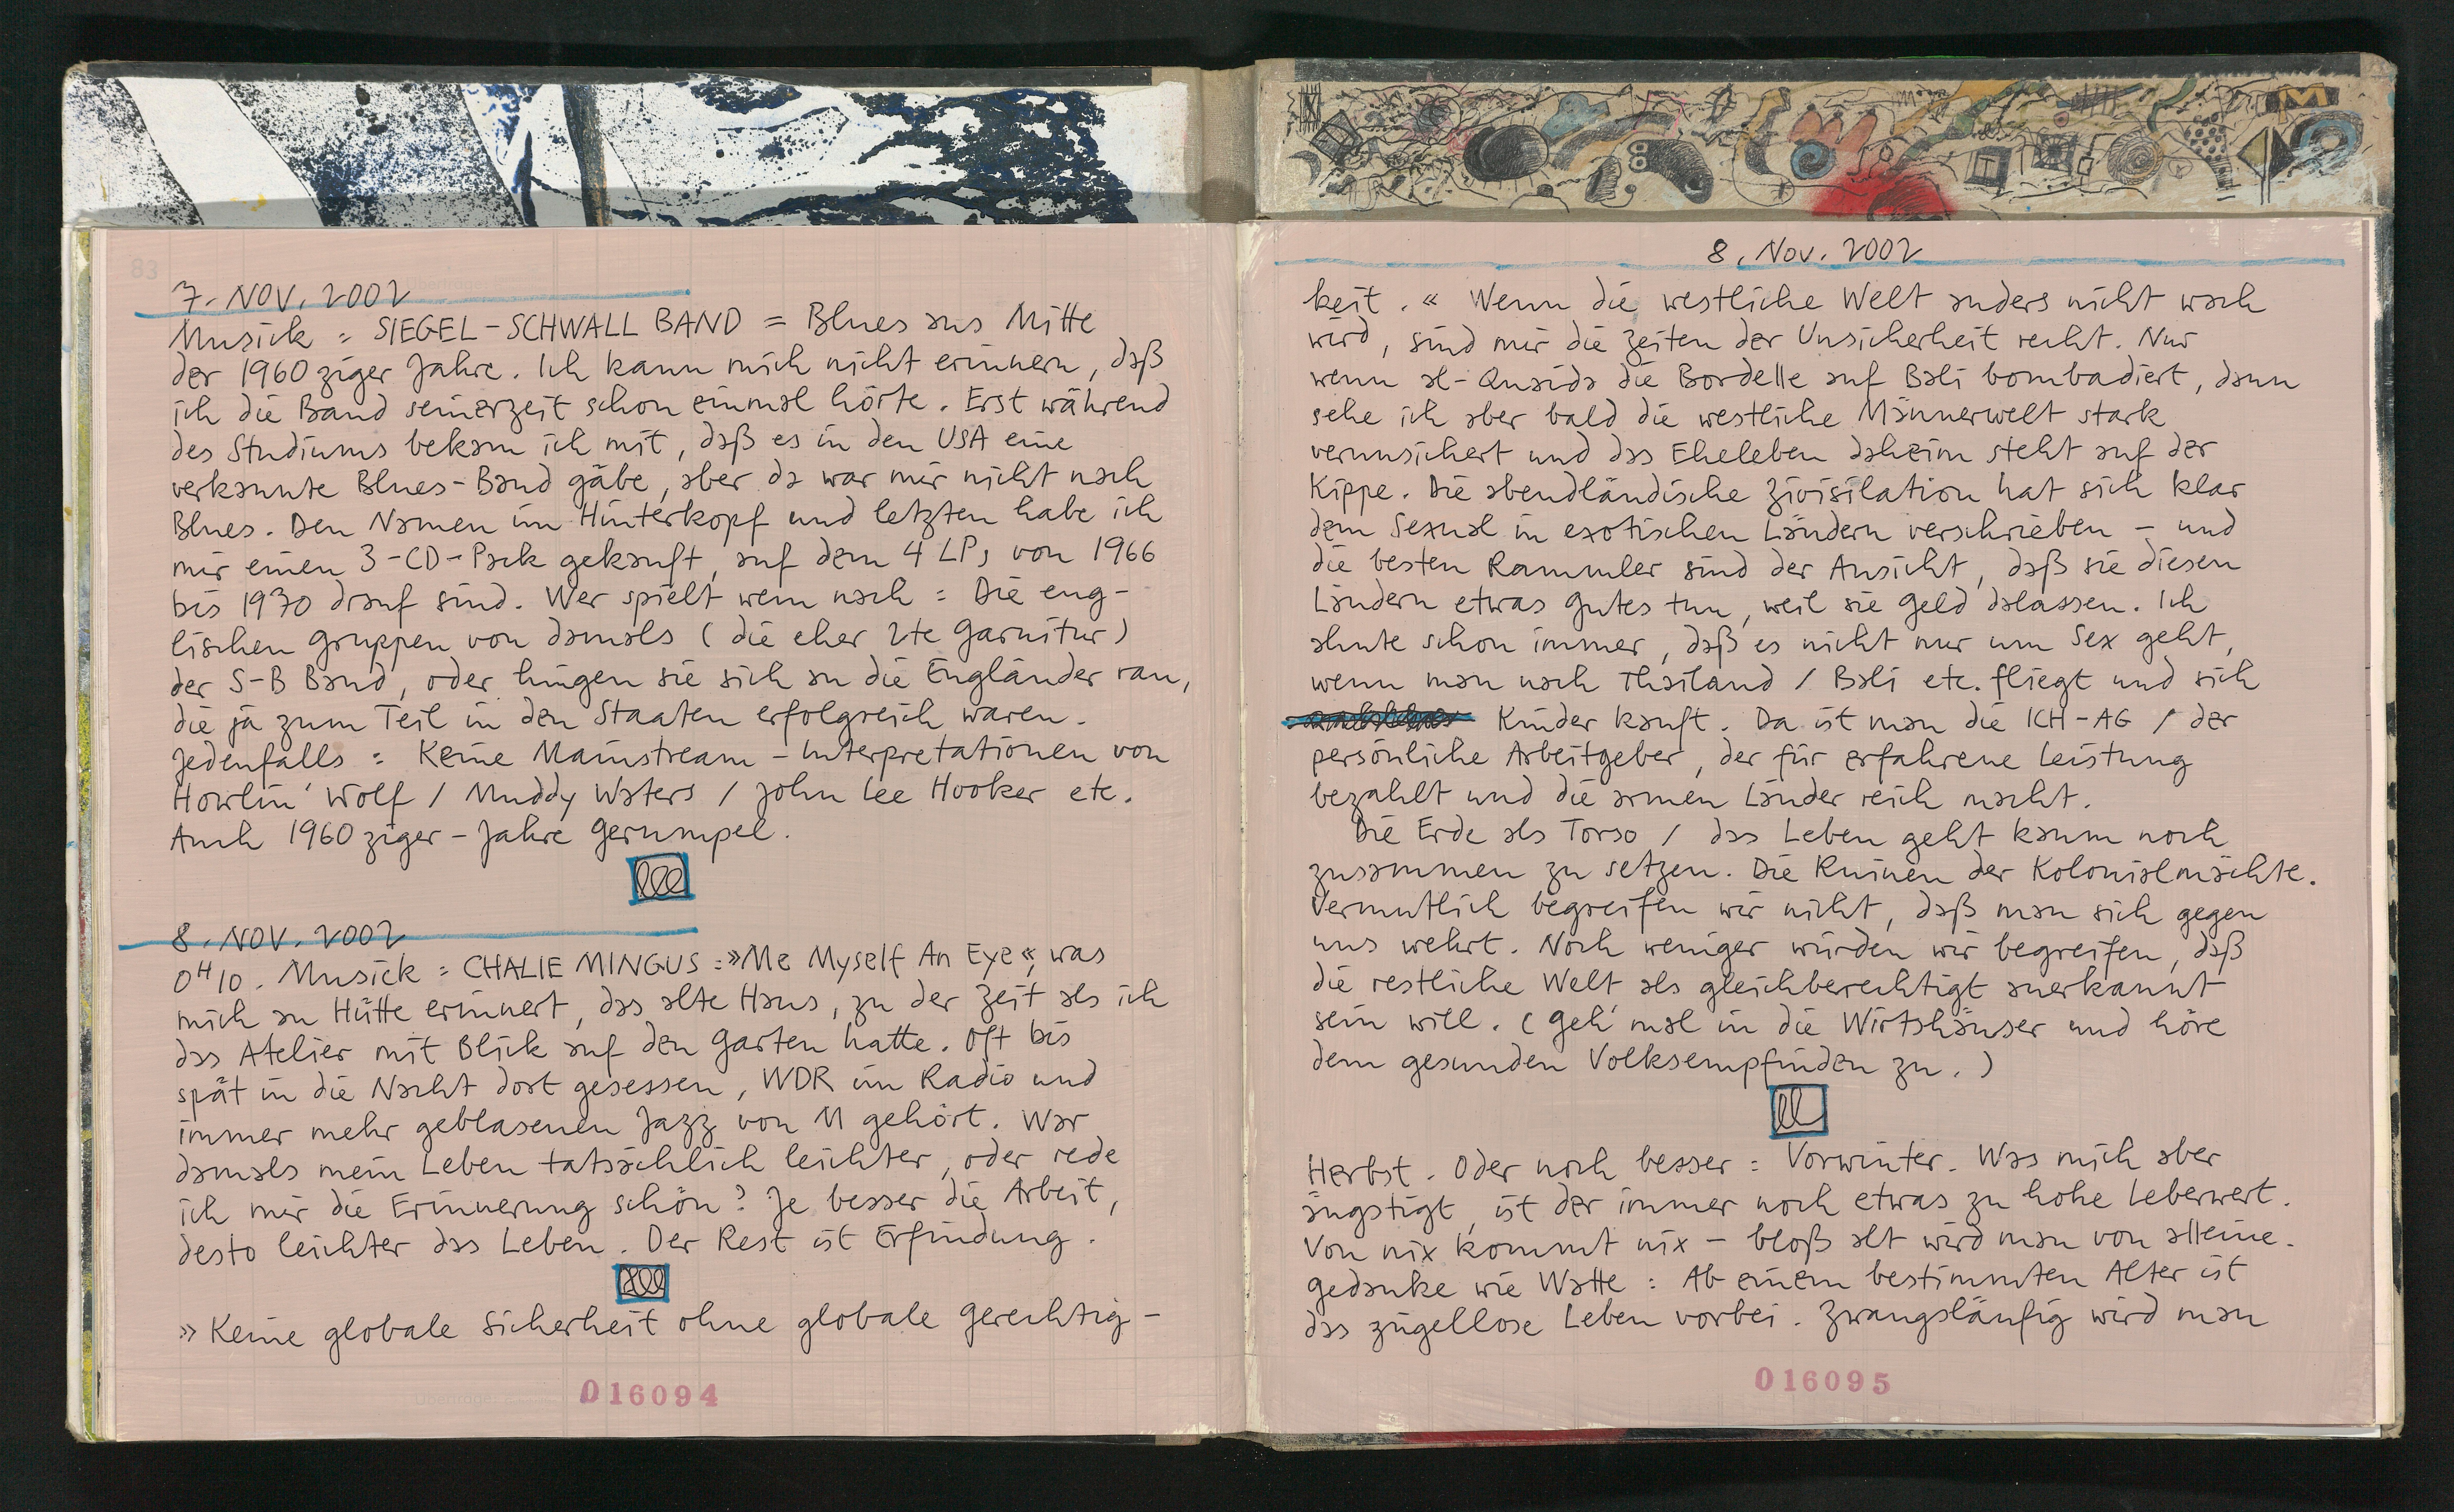 83
7. NOV. 2002
Musick : SIEGEL-SCHWALL BAND = Blues aus Mitte
der 1960ziger Jahre. Ich kann mich nicht erinnern, daß
ich die Band seinerzeit schon einmal hörte. Erst während
des Studiums bekam ich mit, daß es in den USA eine
verkannte Blues-Band gäbe, aber da war mir nicht nach
Blues. Den Namen im Hinterkopf und letzten habe ich
mir einen 3-CD-Pack gekauft, auf dem 4 LPs von 1966
bis 1970 drauf sind. Wer spielt wem nach : Die eng-
lischen Gruppen von damals (die eher 2te Garnitur)
der S-B Band, oder hingen sie sich an die Engländer ran,
die ja zum Teil in den Staaten erfolgreich waren.
Jedenfalls : Keine Mainstream-Interpretationen von
Howlin' Wolf / Muddy Waters / John Lee Hooker etc.
Auch 1960ziger-Jahre Gerumpel.
8. NOV. 2002
0H10. Musick : CHALIE MINGUS :»Me Myself An Eye«, was
mich an Hütte erinnert, das alte Haus, zu der Zeit als ich
das Atelier mit Blick auf den Garten hatte. Oft bis
spät in die Nacht dort gesessen, WDR im Radio und
immer mehr geblasenen Jazz von M gehört. War
damals mein Leben tatsächlich leichter, oder rede
ich mir die Erinnerung schön? Je besser die Arbeit,
desto leichter das Leben. Der Rest ist Erfindung.
»Keine globale Sicherheit ohne globale Gerechtig-
016094
8. Nov. 2002
keit.« Wenn die westliche Welt anders nicht wach
wird, sind mir die Zeiten der Unsicherheit recht. Nur
wenn al-Quaida die Bordelle auf Bali bombadiert, dann
sehe ich aber bald die westliche Männerwelt stark
verunsichert und das Eheleben daheim steht auf der
Kippe. Die abendländische Zivisilation hat sich klar
dem Sexual in exotischen Ländern verschrieben – und
die besten Rammler sind der Ansicht, daß sie diesen
Ländern etwas Gutes tun, weil sie Geld dalassen. Ich
ahnte schon immer, daß es nicht nur um Sex geht,
wenn man nach Thailand / Bali etc. fliegt und sich
Kinder kauft. Da ist man die ICH-AG / der
persönliche Arbeitgeber, der für erfahrene Leistung
bezahlt und die armen Länder reich macht.
Die Erde als Torso / das Leben geht kaum noch
zusammen zu setzen. Die Ruinen der Kolonialmächte.
Vermutlich begreifen wir nicht, daß man sich gegen
uns wehrt. Noch weniger würden wir begreifen, daß
die restliche Welt als gleichberechtigt anerkannt
sein will. (Geh' mal in die Wirtshäuser und höre
dem gesunden Volksempfinden zu.)
Herbst. Oder noch besser : Vorwinter. Was mich aber
ängstigt, ist der immer noch etwas zu hohe Leberwert.
Von nix kommt nix – bloß alt wird man von alleine.
Gedanke wie Watte : Ab einem bestimmten Alter ist
das zügellose Leben vorbei. Zwangsläufig wird man
016095